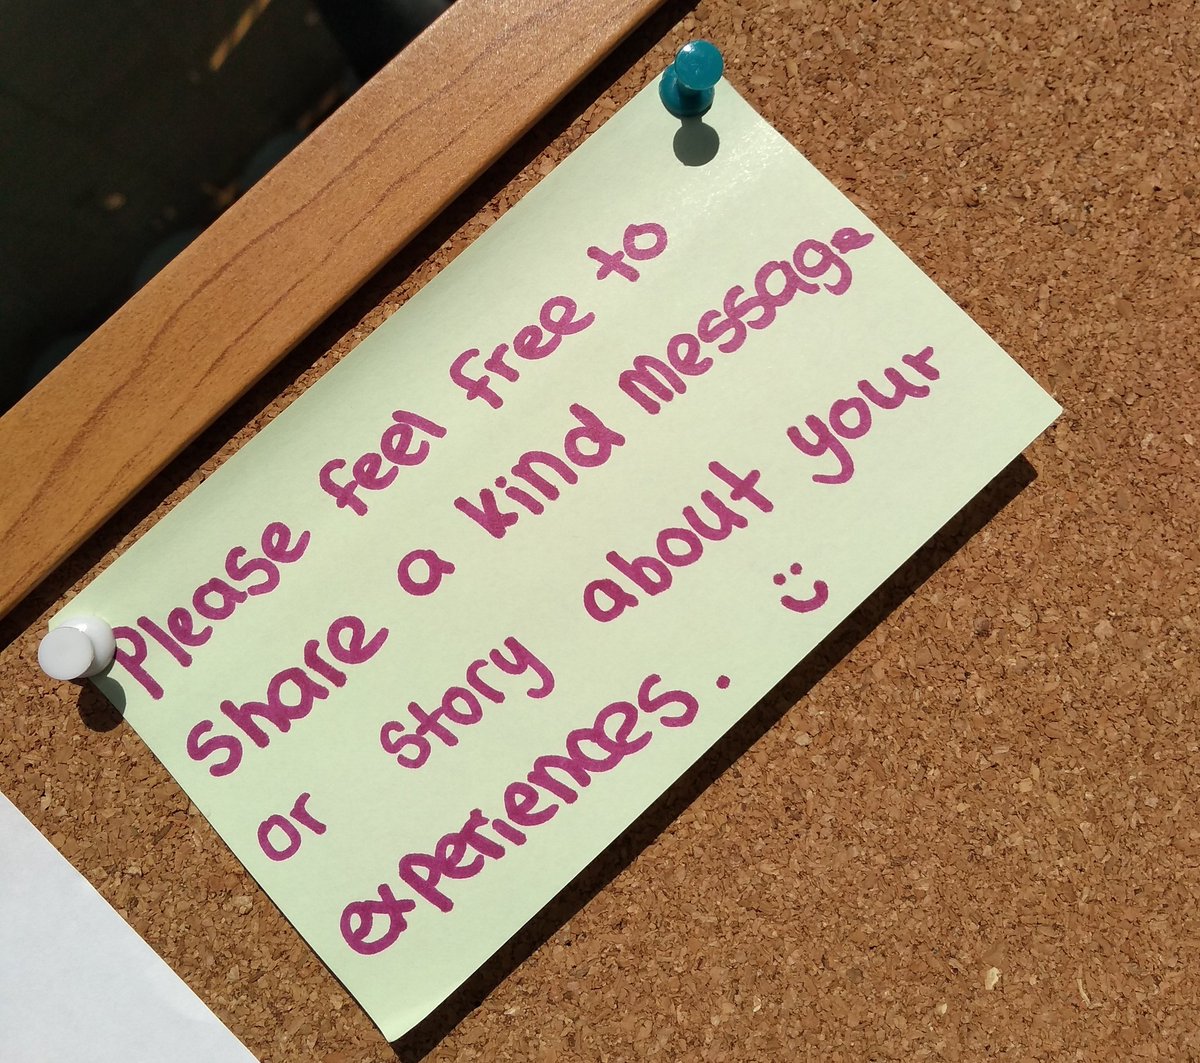 Please feel free to
share a kind message
or story about your
experiences. :)